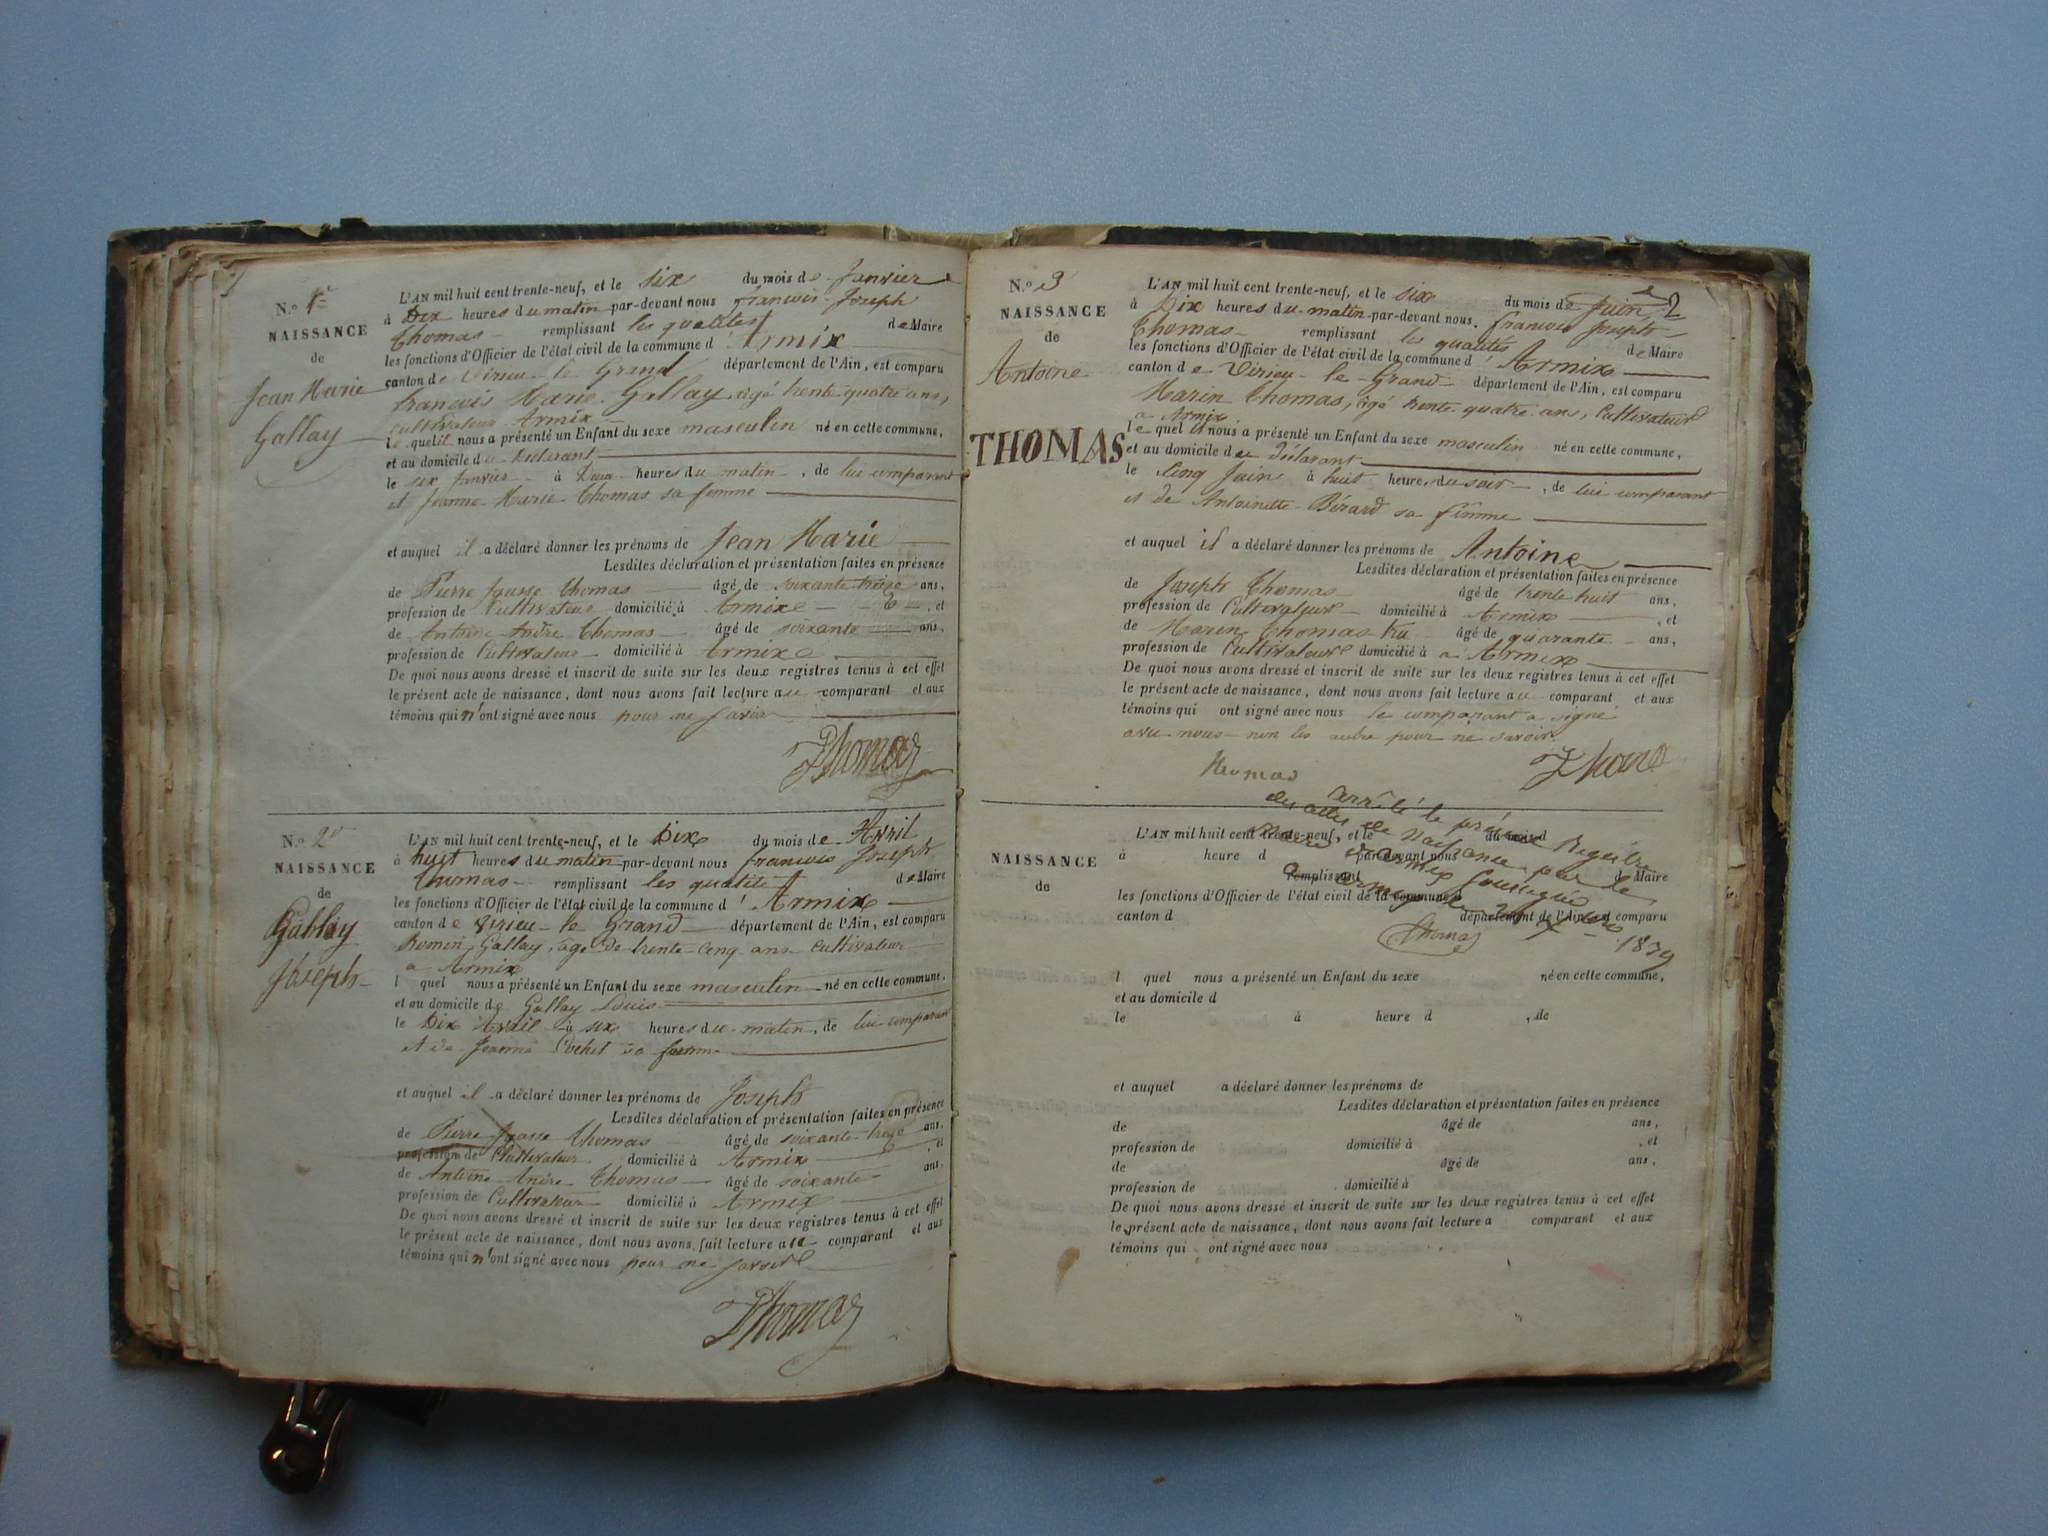 N.o 1er
NAISSANCE
de
Jean Marie
Gallay
L'AN mil huit cent trente-neuf, et le six du mois de Janvier
à Dix heures du matin par-devant nous francois Joseph
Thomas remplissant les qualités de Maire
les fonctions d'Officier de l'état civil de la commune d'Armix
canton de Virieu le Grand département de l'Ain, est comparu
francois Marie Gallay agé trente quatre ans,
cultivateur Armix
lequel il nous a présenté un Enfant du sexe masculin né en cette commune,
et au domicile du Déclarant
le six Janvier à Deux heures du matin, de lui comparant
et Jeanne Marie Thomas sa femme
et auquel il a déclaré donner les prénoms de Jean Marie
Lesdites déclaration et présentation faites en présence
de Pierre Thomas âgé de soixante treize ans,
profession de Cultivateur domicilié à Armix, et
de Antoine Andre Thomas âgé de soixante ans,
profession de Cultivateur domicilié à Armix
De quoi nous avons dressé et inscrit de suite sur les deux registres tenus à cet effet
le présent acte de naissance, dont nous avons fait lecture au comparant et aux
témoins qui n'ont signé avec nous pour ne savoir
Thomas
N.o 2
NAISSANCE
de
Gallay
Joseph
L'AN mil huit cent trente-neuf, et le Dix du mois de Avril
à huit heures du matin par-devant nous francois Joseph
Thomas remplissant les qualité de Maire
les fonctions d'Officier de l'état civil de la commune d'Armix
canton de Virieu le Grand département de l'Ain, est comparu
Romin Gallay, âgé de trente cinq ans cultivateur
a Armix
l quel nous a présenté un Enfant du sexe masculin né en cette commune,
et au domicile de Gallay Louis
le Dix Avril à six heures du matin, de lui comparant
et de Jeanne Cochet sa femme
et auquel il a déclaré donner les prénoms de Joseph
Lesdites déclaration et présentation faites en présence
de Pierre Thomas âgé de soixante treize ans,
profession de Cultivateur domicilié à Armix, et
de Antoine Andre Thomas âgé de soixante ans,
profession de Cultivateur domicilié à Armix
De quoi nous avons dressé et inscrit de suite sur les deux registres tenus à cet effet
le présent acte de naissance, dont nous avons fait lecture au comparant et aux
témoins qui n'ont signé avec nous pour ne savoir
Thomas
2
N.o 3
NAISSANCE
de
Antoine
THOMAS
L'AN mil huit cent trente-neuf, et le six du mois de Juin
à Dix heures du matin par-devant nous. francois Joseph
Thomas remplissant les qualités de Maire
les fonctions d'Officier de l'état civil de la commune d'Armix
canton de Virieu le Grand département de l'Ain, est comparu
Marin Thomas, âgé trente quatre ans, Cultivateur
a Armix
lequel il nous a présenté un Enfant du sexe masculin né en cette commune,
et au domicile du déclarant
le Cinq Juin à huit heures du soir, de lui comparant
et de Antoinette Bérard sa femme
et auquel il a déclaré donner les prénoms de Antoine
Lesdites déclaration et présentation faites en présence
de Joseph Thomas âgé de trente huit ans,
profession de Cultivateur domicilié à Armix, et
de Marin Thomas âgé de quarante ans,
profession de Cultivateur domicilié à a Armix
De quoi nous avons dressé et inscrit de suite sur les deux registres tenus à cet effet
le présent acte de naissance, dont nous avons fait lecture au comparant et aux
témoins qui ont signé avec nous le comparant a signé
avec nous non les autre pour ne savoir.
Thomas Thomas
NAISSANCE
de
L'AN mil huit cent trente-neuf, et le du mois d
à heure d par-devant nous
remplissant d Maire
les fonctions d'Officier de l'état civil de la commune d
canton d département de l'Ain, est comparu
arrêté le présent Registre
des actes de Naissance par le
Maire d'armix soussigné
a armix le 1839
Thomas
l quel nous a présenté un Enfant du sexe né en cette commune,
et au domicile d
le à heure d , de
et auquel a déclaré donner les prénoms de
Lesdites déclaration et présentation faites en présence
de âgé de ans,
profession de domicilié à , et
de âgé de ans,
profession de domicilié à
De quoi nous avons dressé et inscrit de suite sur les deux registres tenus à cet effet
le présent acte de naissance, dont nous avons fait lecture a comparant et aux
témoins qui ont signé avec nous